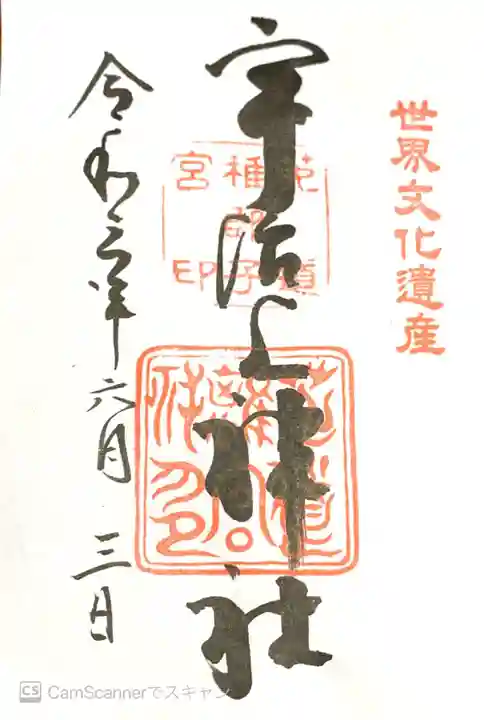 世界文化遺産
宇治上神社
菟道
稚郎子
宮印
令和三年六月三日
CS CamScannerでスキャン